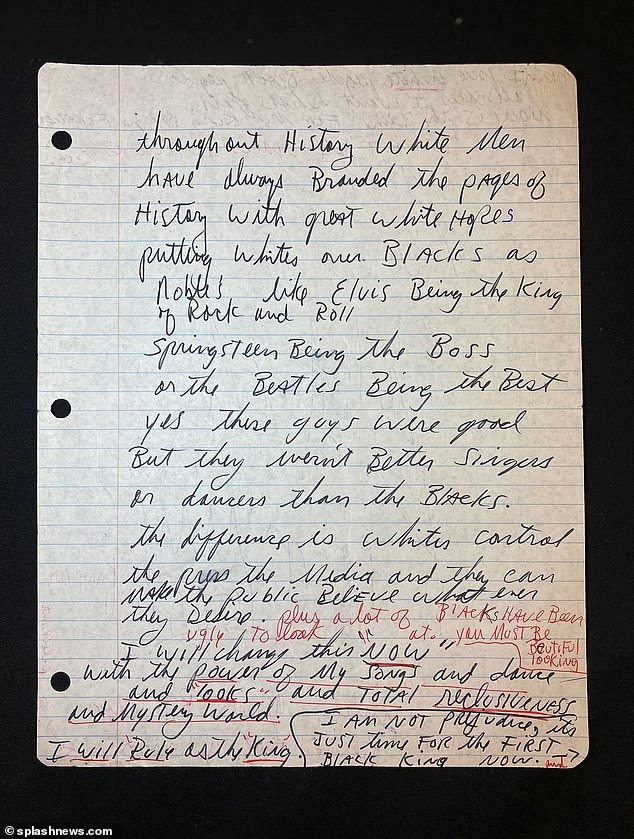 throughout History White Men
hAve always Branded the pAges of
History with great White Hopes
putting Whites over BLACKS as
Nobles like Elvis Being the King
of Rock and Roll
Springsteen Being the Boss
or the BEATLES Being the Best
yes these guys were good
But they wern't Better Singers
or dancers than the BlAcks.
the difference is whites control
the press the Media and they can
MAKE the Public BeliEve what ever
they Desire. plus a lot of BlAcks HAVE BEEN
ugly to look at. you Must Be
BEUTIFUL
looking
I will change this "NOW"
with the power of My Songs and dance
and "looks" and TOTAL reclusiveness
and Mystery World.
I will Rule as the King.
I AM NOT Prejudice, its
JUST time FOR the FIRST
BLACK King NOW.
splashnews.com